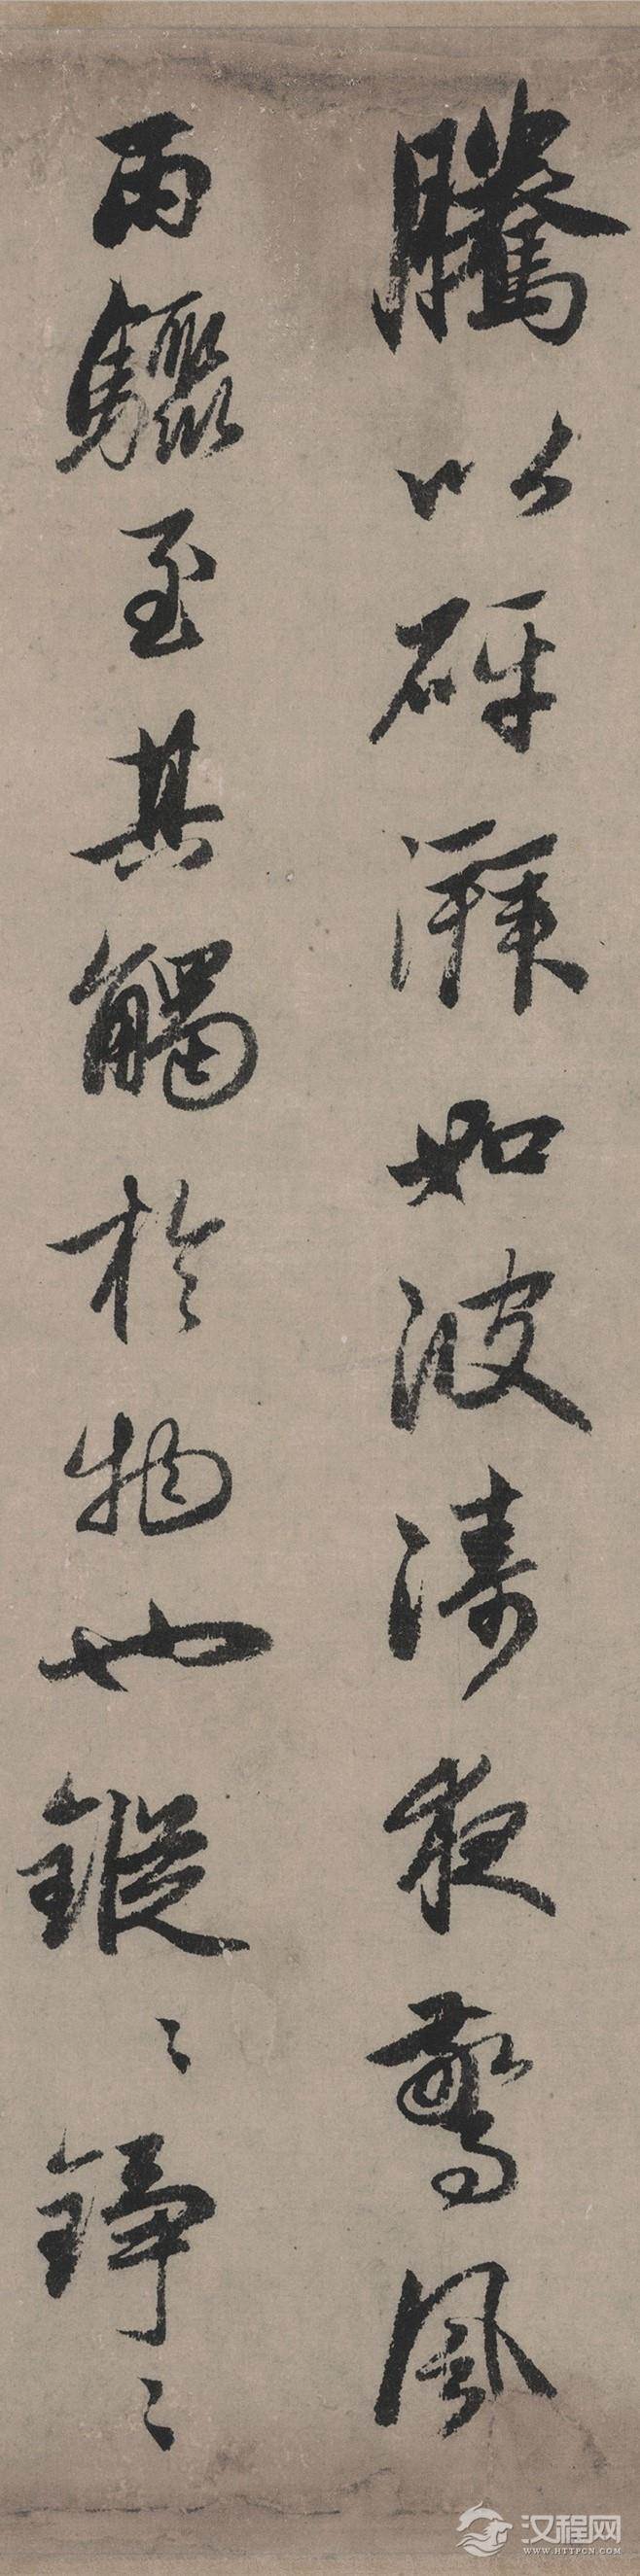 騰以砰湃如波濤夜驚風
雨驟至其觸於物也鏦〻錚〻
汉程网
WWW.HTTPCN.COM